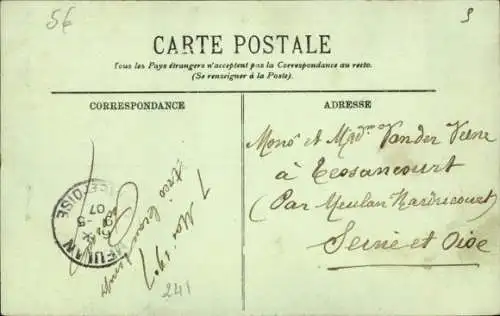 56
5
CARTE POSTALE
Tous les Pays étrangers n'acceptent pas la Correspondance au recto.
(Se renseigner à la Poste).
CORRESPONDANCE
ADRESSE
Monsr et Mme Van der Veene
à Tessancourt
(Par Meulan Hardricourt)
Seine et Oise
7 Mai 1907
241
MEULAN
ET-OISE
5
07